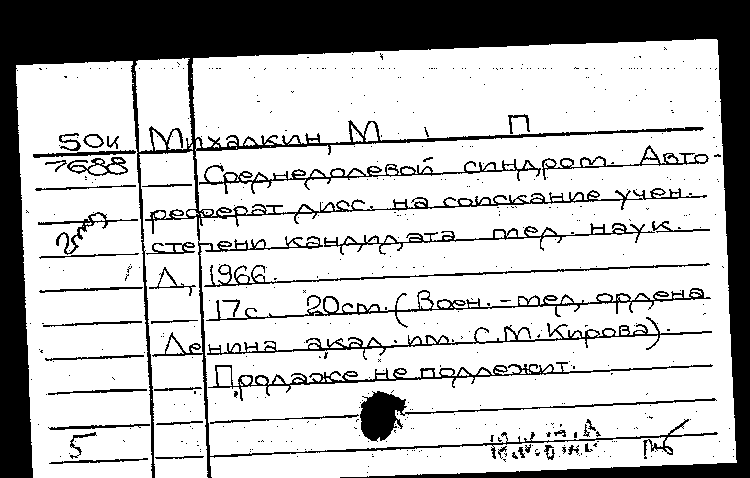 50к Михалкин, М П
7688 Среднедолевой синдром. Авто-
реферат дисс. на соискание учен.
степени кандидата мед. наук.
Л., 1966.
17с. 20см. (Воен.-мед. ордена
Ленина акад. им. С.М.Кирова).
Продаже не подлежит.
5